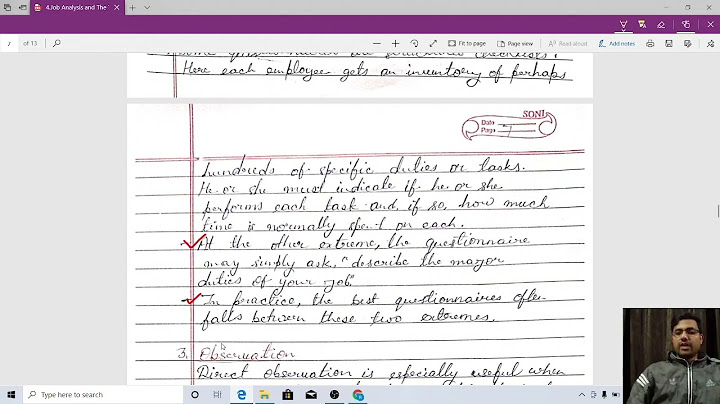 4.Job Analysis and The
7 of 13
Fit to page
Page view
Read aloud
Add notes
Here each employee gets an inventory of perhaps
SONI
Date
Page
hundreds of specific duties or tasks.
He or she must indicate if he or she
performs each task and, if so, how much
time is normally spent on each.
At the other extreme, the questionnaire
may simply ask, "describe the major
duties of your job."
In practice, the best questionnaires often
falls between these two extremes.
3. Observation
Direct observation is especially useful when
Type here to search